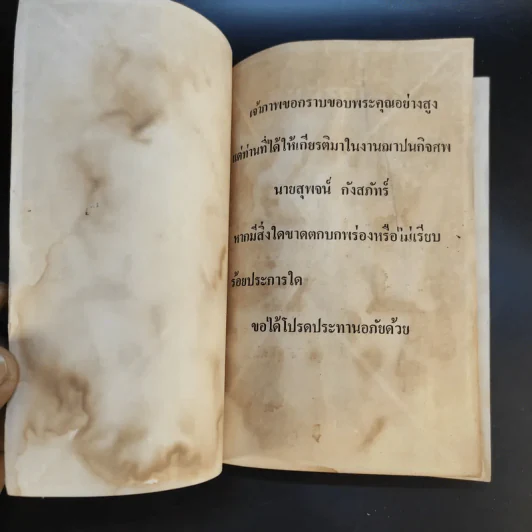 เจ้าภาพขอกราบขอบพระคุณอย่างสูง
แด่ท่านที่ได้ให้เกียรติมาในงานฌาปนกิจศพ
นายสุพจน์ กังสภัทร์
หากมีสิ่งใดขาดตกบกพร่องหรือไม่เรียบ
ร้อยประการใด
ขอได้โปรดประทานอภัยด้วย